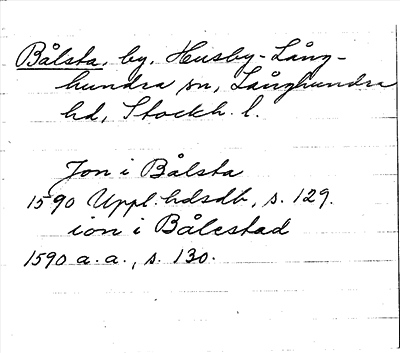 Bålsta, by, Husby-Lång-
hundra sn, Långhundra
hd, Stockh. l.
Jon i Bålsta
1590 Uppl. hdsdb, s. 129.
ion i Bålestad
1590 a. a., s. 130.